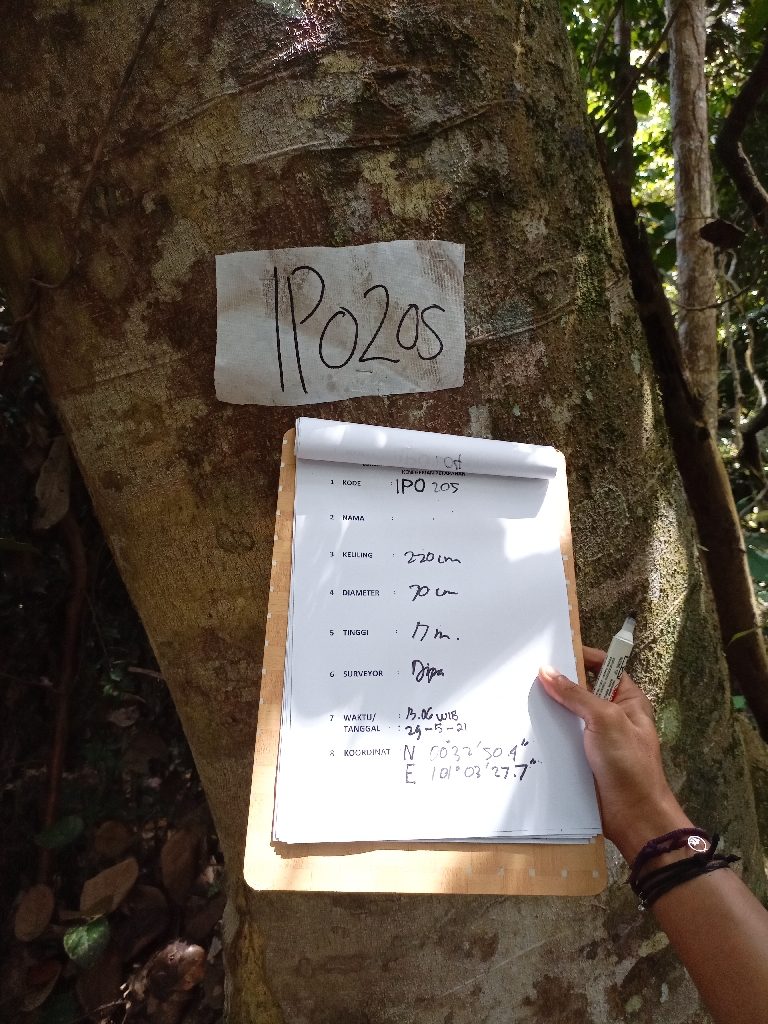 IPO205
1 KODE : IPO 205
2 NAMA :
3 KELILING : 220 cm
4 DIAMETER : 70 cm
5 TINGGI : 17 m.
6 SURVEYOR : Dipa
7 WAKTU/ : 13.06 WIB
TANGGAL : 29-5-21
8 KOORDINAT N 00°32'50.4"
E 101°03'27.7"